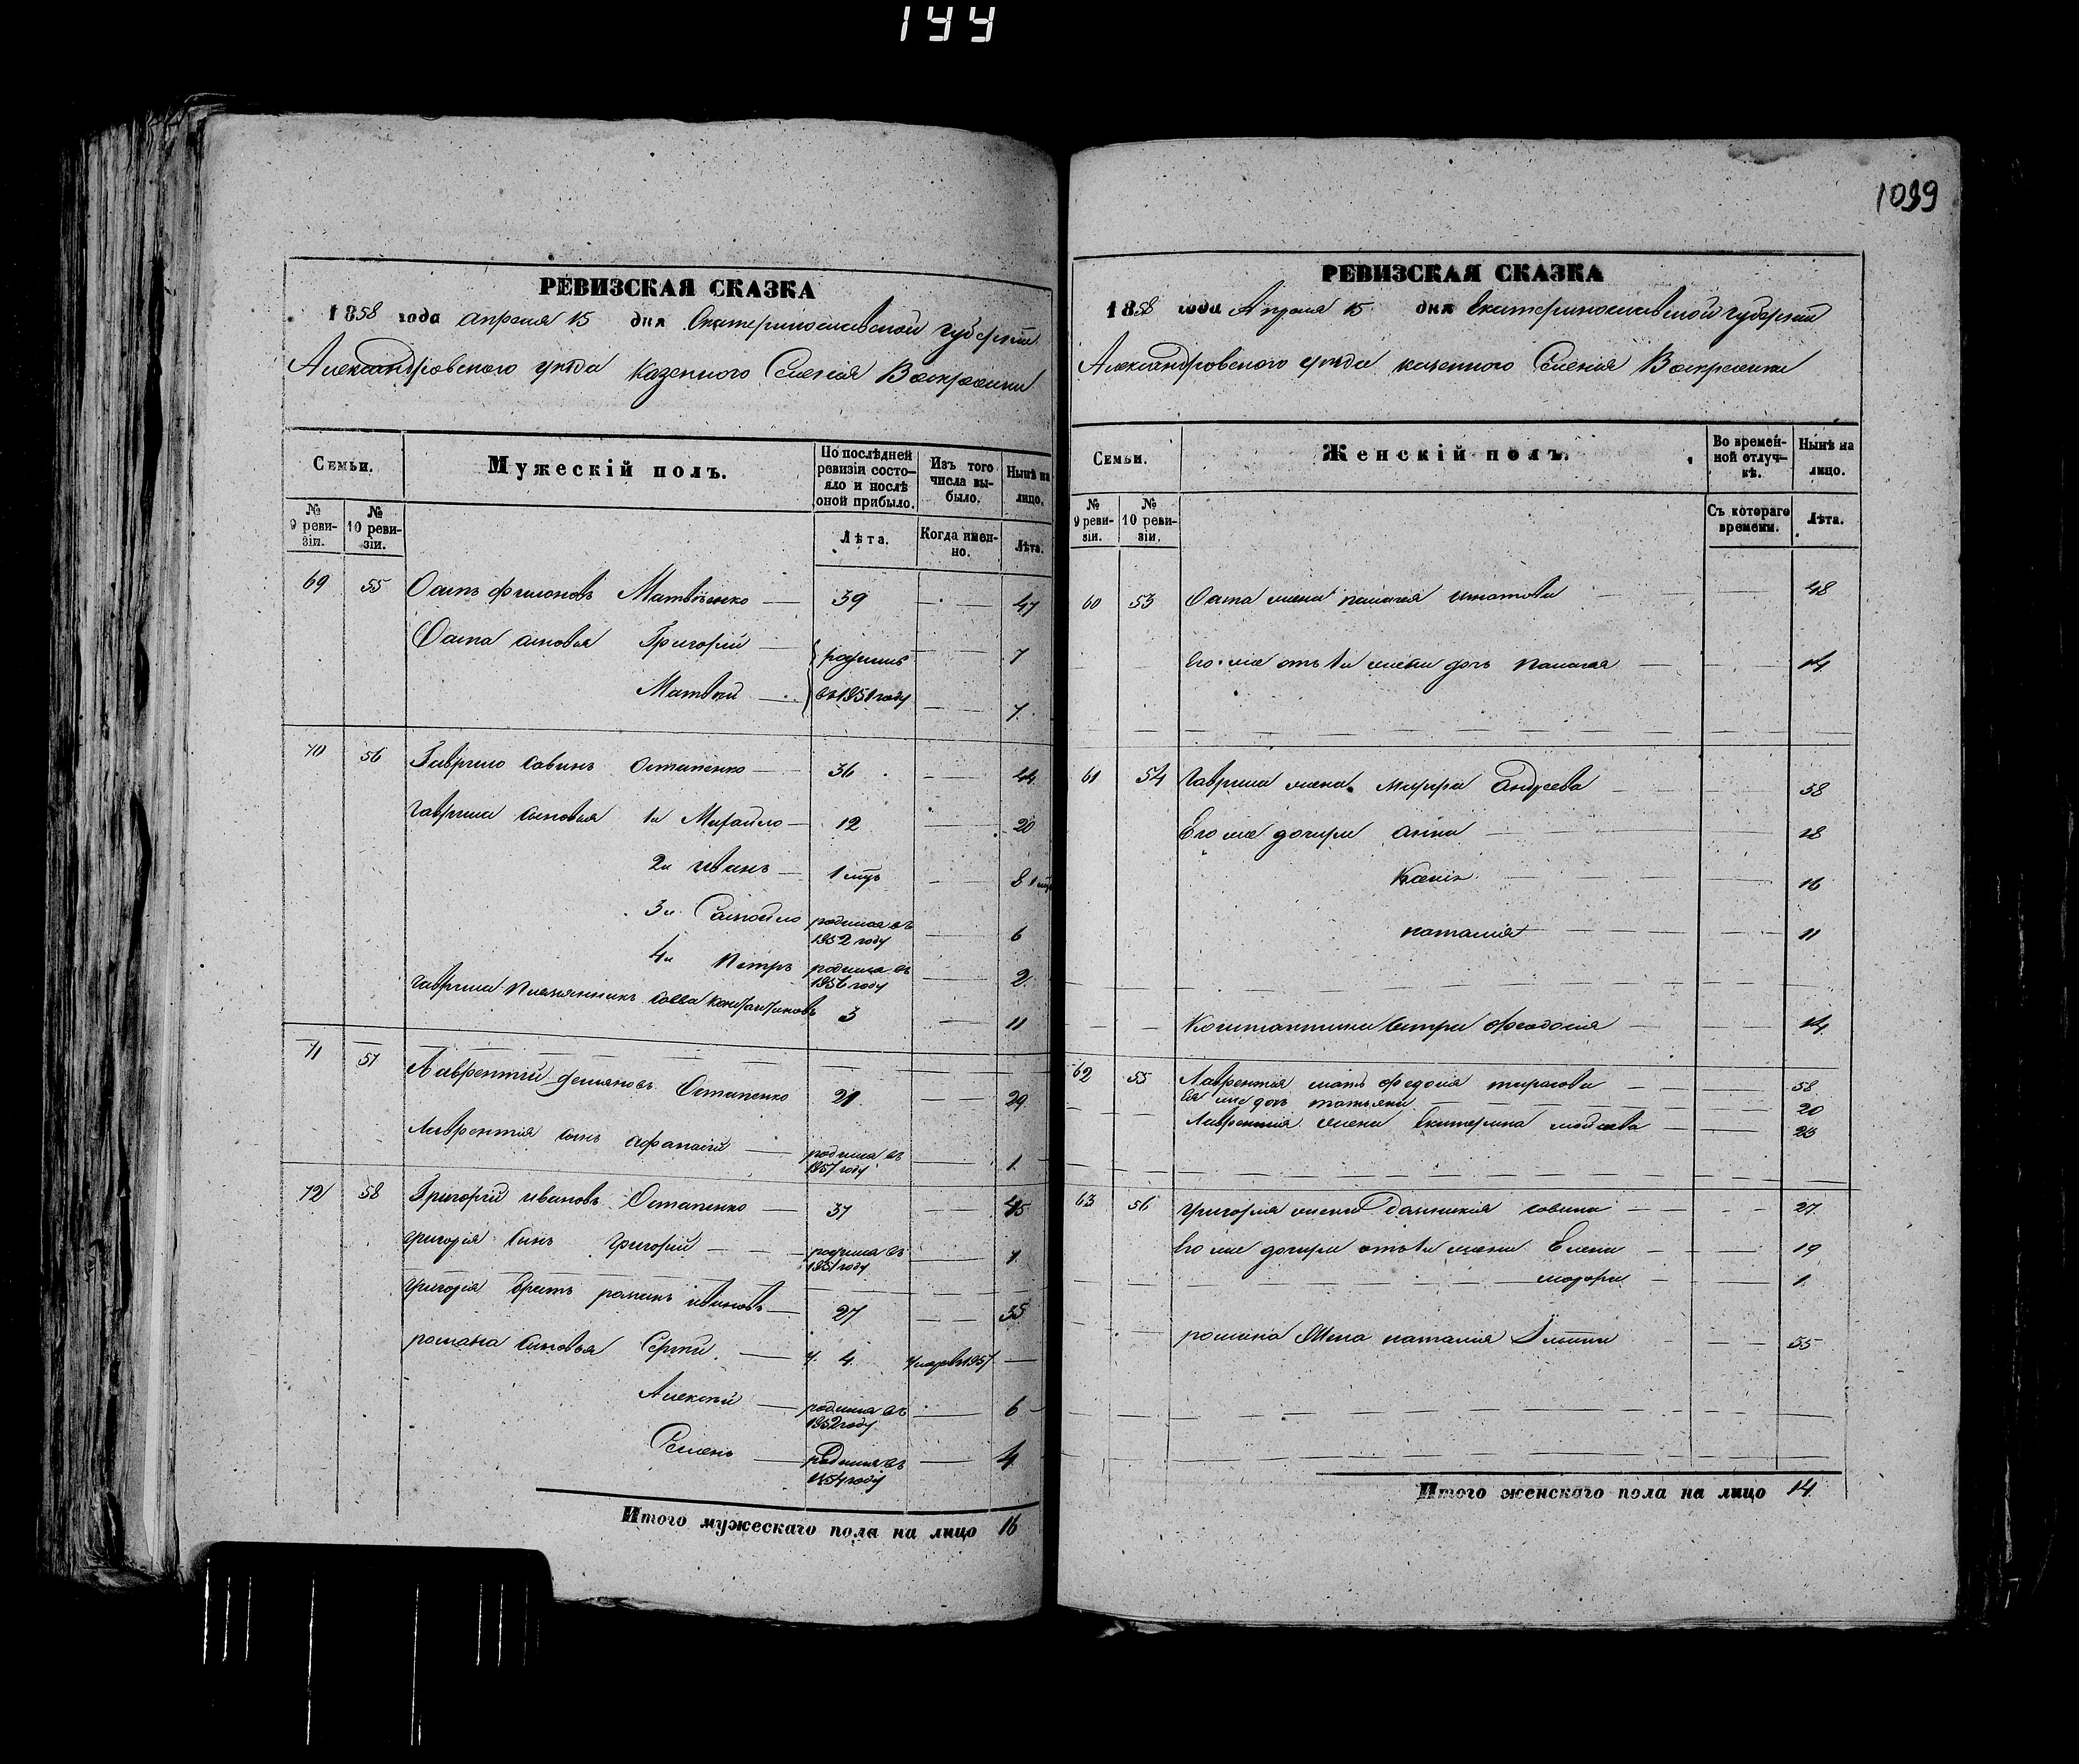 144
РЕВИЗСКАЯ СКАЗКА
1858 года апреля 15 дня Екатеринославской губернии
Александровского уезда казенного Селения Воскресенки
Семьи.
Мужескій полъ.
По послѣдней ревизіи состояло и послѣ оной прибыло.
Изъ того числа выбыло.
Нынѣ на лицо.
№ 9 ревизіи.
№ 10 ревизіи.
Лѣта.
Когда именно.
Лѣта.
69 55 Осипъ филоновъ Матвѣенко 39 47
Осипа сыновья Григорій родились 7
Матвѣй въ 1851 году 7
70 56 Гаврило савинъ Остапенко 36 44
гаврила сыновья 1й Михайло 12 20
2й иванъ 1 8
3й Самойло родился въ 1852 году 6
4й петръ родился въ 1856 году 2
гаврила племянникъ савва константиновъ 3 11
71 57 Лаврентій демяновъ Остапенко 21 29
лаврентія сынъ афанасій родился въ 1857 году 1
72 58 Григорій ивановъ Остапенко 37 45
григорія сынъ григорій родился въ 1857 году 1
григорія братъ романъ ивановъ 27 35
романа сыновья Сергѣй 4
Алексѣй родился въ 1852 году 6
Семенъ родился въ 1854 году 4
Итого мужескаго пола на лицо 16
1039
РЕВИЗСКАЯ СКАЗКА
1858 года Апреля 15 дня Екатеринославской губерніи
Александровского уезда казенного Селения Воскресенки
Семьи.
Женскій полъ.
Во временной отлучкѣ.
Нынѣ на лицо.
№ 9 ревизіи.
№ 10 ревизіи.
Съ котораго времени.
Лѣта.
60 53 Осипа жена пелагея игнатова 48
Его же отъ 1й жены дочь пелагея 14
61 54 гаврила жена Андреева 38
Его же дочери анна 18
16
наталія 11
Константина сестра феодосія 14
62 55 Лаврентія мать федосія тарасова 58
Ея же дочь татьяна 20
Лаврентія жена Екатерина 23
63 56 григорія жена савина 27
Его же дочери отъ 1й жены Елена 19
1
романа жена наталія 35
Итого женскаго пола на лицо 14